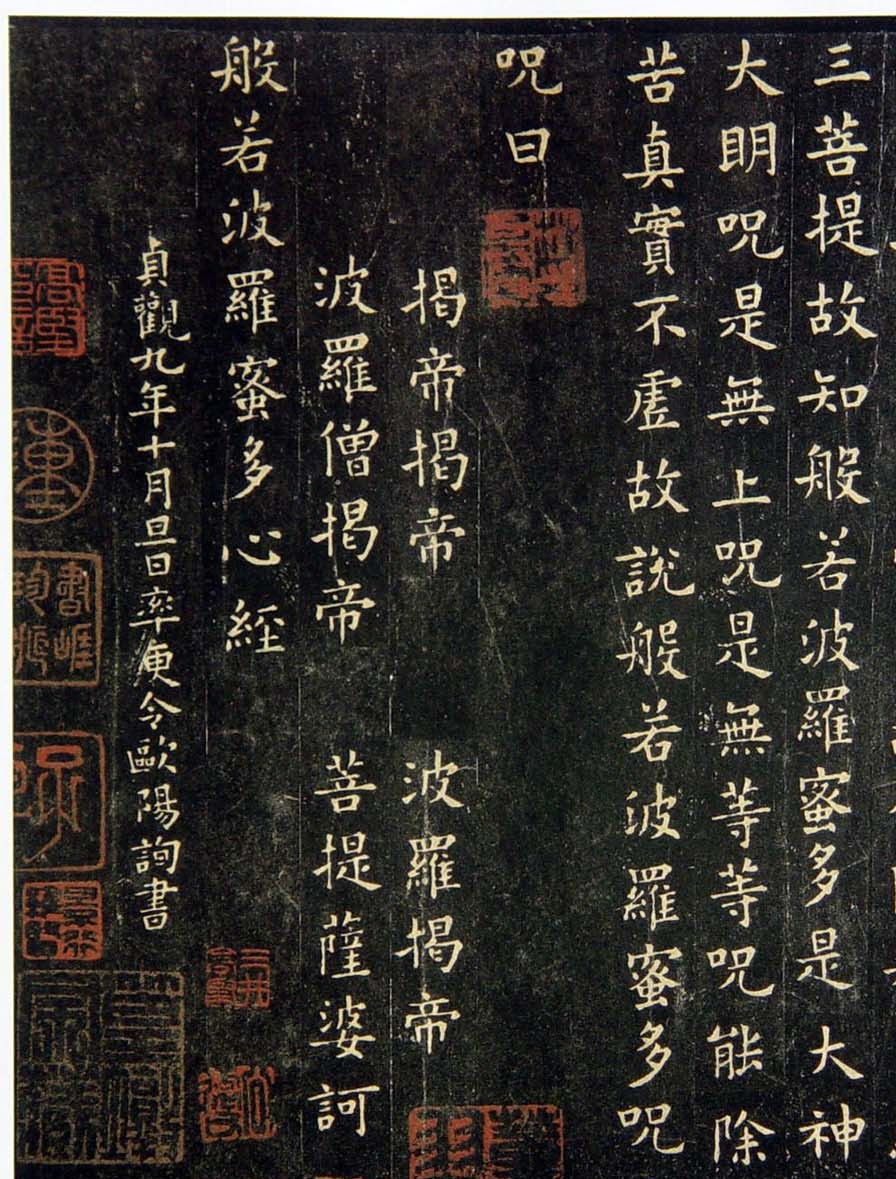 三菩提故知般若波羅蜜多是大神
大明呪是無上呪是無等等呪能除
苦真實不虛故說般若波羅蜜多呪
呪曰
揭帝揭帝 波羅揭帝
波羅僧揭帝 菩提薩婆訶
般若波羅蜜多心經
貞觀九年十月旦日率更令歐陽詢書